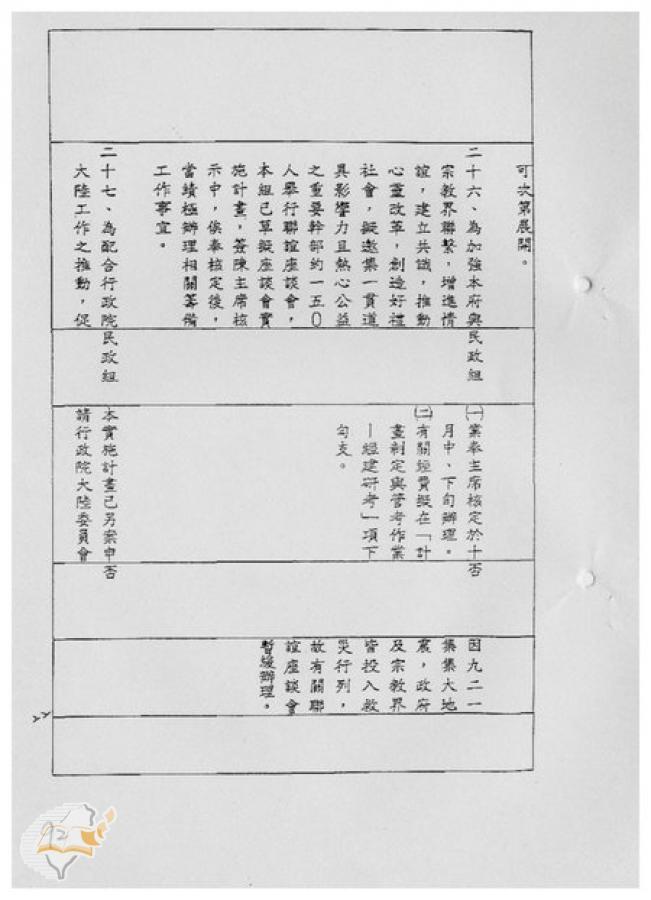 可次第展開。
二十六、為加強本府與
宗教界聯繫，增進情
誼，建立共識，推動
心靈改革，創造好禮
社會，擬邀集一貫道
具影響力且熱心公益
之重要幹部約一五０
人舉行聯誼座談會，
本組已草擬座談會實
施計畫，簽陳主席核
示中，俟奉核定後，
當積極辦理相關籌備
工作事宜。
民政組
㈠業奉主席核定於十
月中、下旬辦理。
㈡有關經費擬在「計
畫制定與管考作業
－經建研考」一項下
勻支。
否
因九二一
集集大地
震，政府
及宗教界
皆投入救
災行列，
故有關聯
誼座談會
暫緩辦理。
二十七、為配合行政院
大陸工作之推動，促
民政組
本實施計畫已另案申
請行政院大陸委員會
否